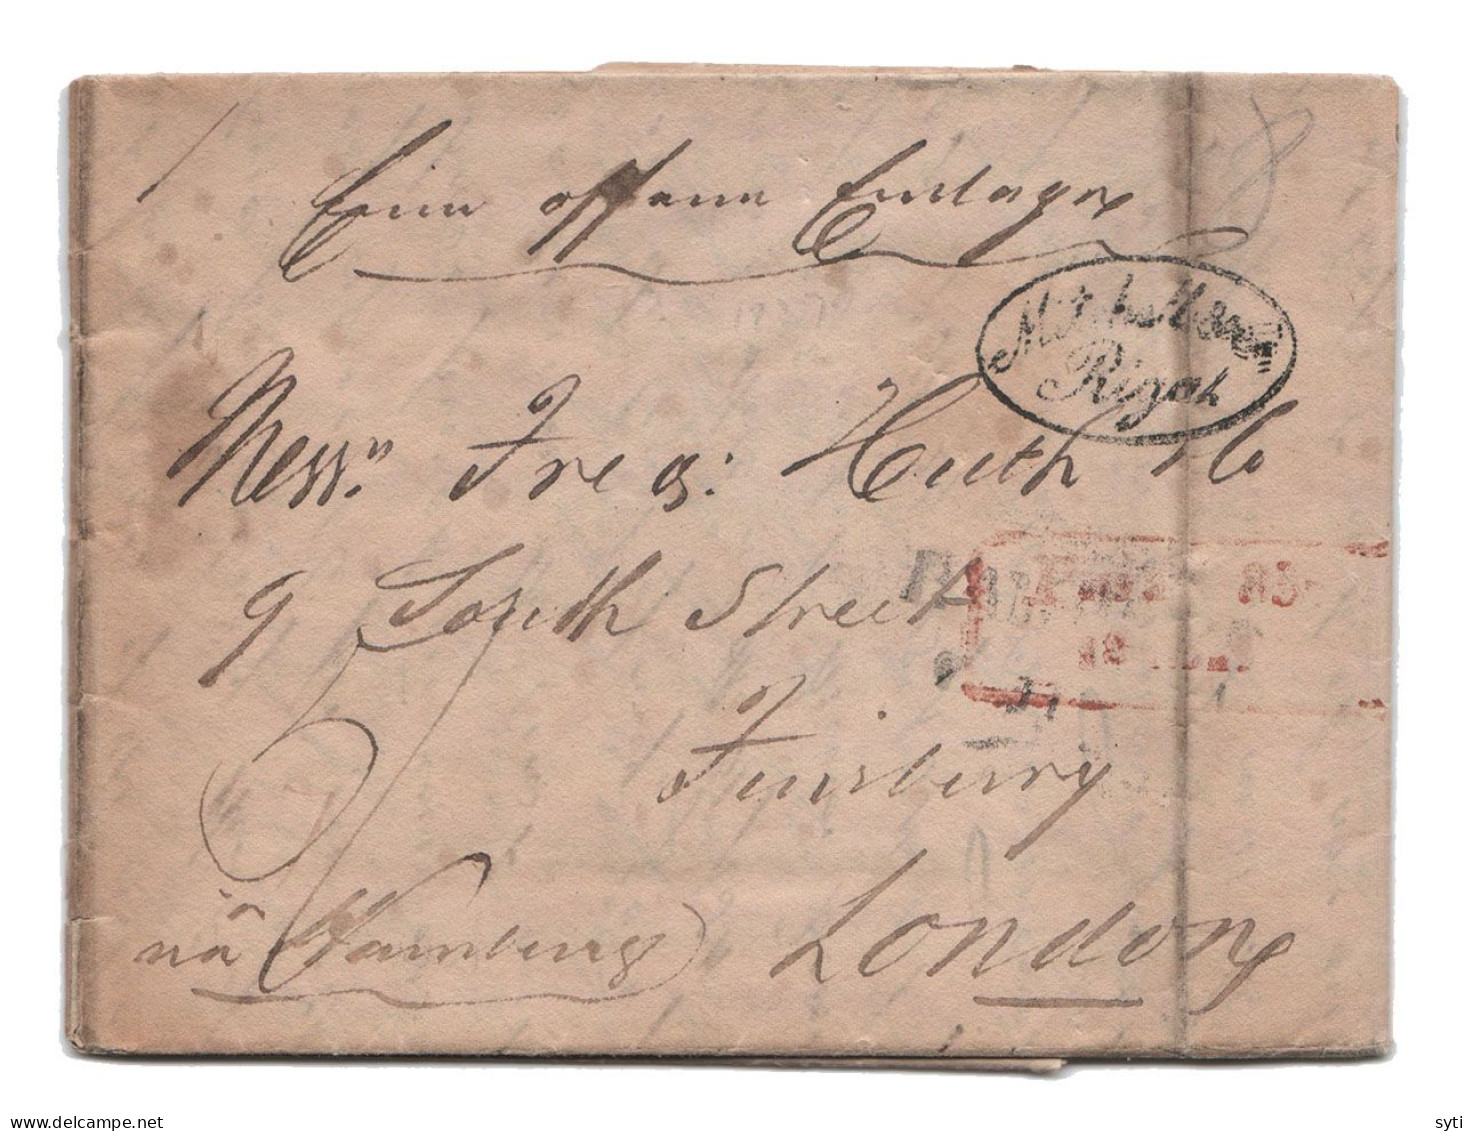 Eine offene Einlage
Mitchell & Co
Riga
Messrs. Fred: Huth & Co
9 South Street
Finsbury
viâ Hamburg London
delcampe.net
syti